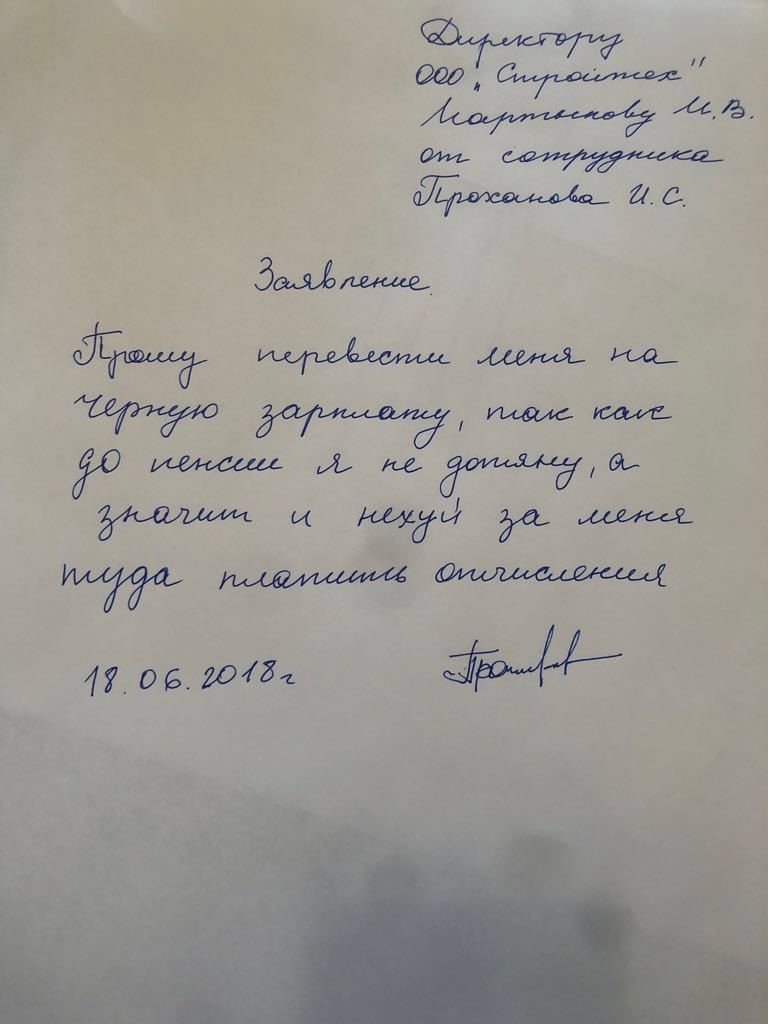 Директору
ООО „Стройтех"
Мартынову М.В.
от сотрудника
Проханова И.С.
Заявление.
Прошу перевести меня на
черную зарплату, так как
до пенсии я не дотяну, а
значит и нехуй за меня
туда платить отчисления
18.06.2018г